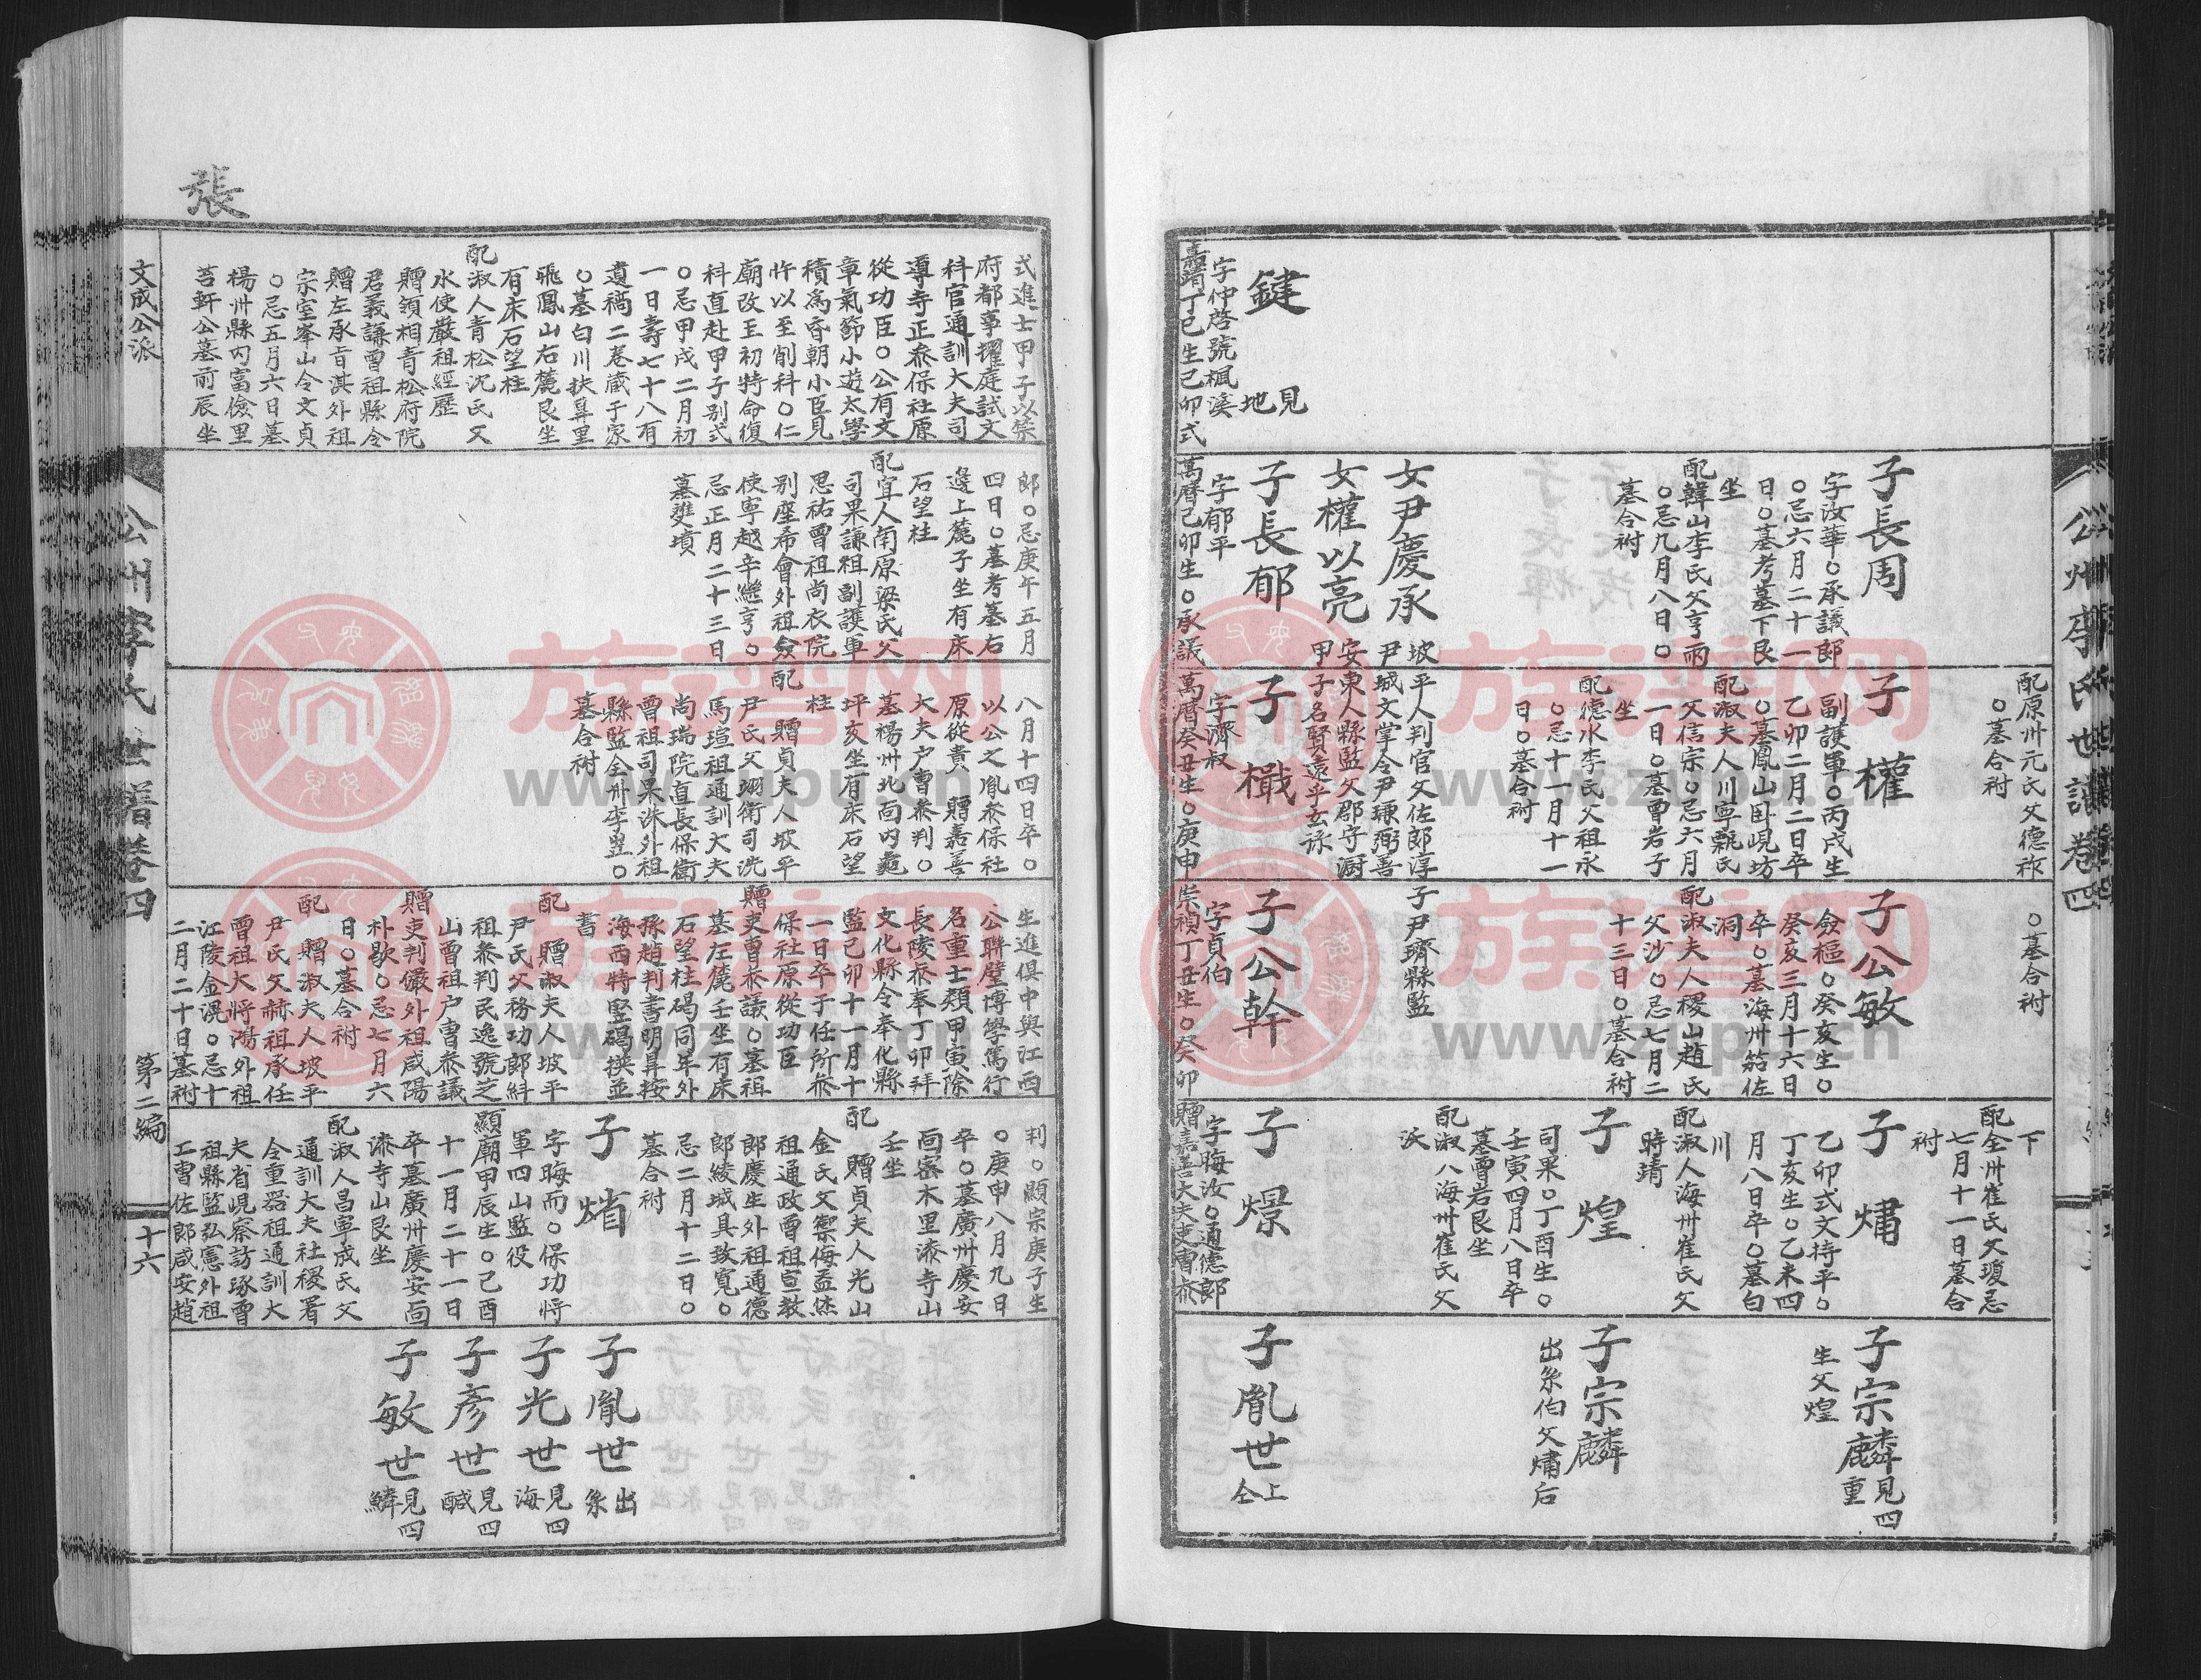 公州李氏世譜卷四
鍵
見
地
字仲啓號楓溪
嘉靖丁巳生己卯式
子長周
字汝華○承議郎
○忌六月二十一
日○墓考墓下艮
坐
配韓山李氏父亨雨
○忌九月八日○
墓合祔
女尹慶承
坡
尹
女權以亮
安
甲
子長郁
字郁平
萬曆己卯生○承議
配原州元氏父德祚
○墓合祔
子權
副護軍○丙戌生
乙卯二月二日卒
○墓鳳山卧峴坊
配淑夫人川寧甄氏
父信宗○忌六月
一日○墓曾岩子
坐
配德水李氏父祖永
○忌十一月十一
日○墓合祔
平人判官父佐郎淳
城文掌令尹㻶弼善
東人縣監父郡守澍
子名賢遠平玄孫
子檝
字濟叔
萬曆癸丑生○庚申
○墓合祔
子公敏
僉樞○癸亥生○
癸亥三月十六日
卒○墓海州筎佐
洞
配淑夫人稷山趙氏
父沙○忌七月二
十三日○墓合祔
子尹㻶縣監
子公幹
字貞伯
崇禎丁丑生○癸卯
下
配全州崔氏父瓊忌
七月十一日墓合
祔
子㷸
乙卯式文持平○
丁亥生○乙未四
月八日卒○墓白
川
配淑人海州崔氏父
時靖
子煌
司果○丁酉生○
壬寅四月八日卒
墓曾岩艮坐
配淑人海州崔氏父
㳓
子㷡
字晦汝○通德郎
贈嘉善大夫吏曹叅
子宗麟見四
重
生父煌
子宗麟
出系伯父㷸后
子胤世上
仝
張
式進士甲子以禁
府都事擢庭試文
科官通訓大夫司
䆃寺正叅保社原
從功臣○公有文
章氣節小遊太學
積爲昏朝小臣見
忤以至削科○仁
廟改玉初特命復
科直赴甲子别式
○忌甲戌二月初
一日壽七十八有
遺稿二卷蔵于家
○墓白川扶鼻里
飛鳳山右麓艮坐
有床石望柱
配淑人青松沈氏父
水使嚴祖經歷
贈領相青松府院
君義謙曾祖縣令
贈左承旨淇外祖
宗室峯山令文貞
○忌五月六日墓
楊州縣內富儉里
莒軒公墓前辰坐
郎○忌庚午五月
四日○墓考墓右
邊上麓子坐有床
石望柱
配宜人南原梁氏父
司果謙祖副護軍
思祐曾祖尚衣院
别座希會外祖僉
使寧越辛繼亨○
忌正月二十三日
墓雙墳
八月十四日卒○
以公之胤叅保社
原從貴　贈嘉善
大夫户曹叅判○
墓楊州北面內巍
坪亥坐有床石望
柱
配　贈貞夫人坡平
尹氏父翊衛司洗
馬瑄祖通訓大夫
尚瑞院直長保衛
曾祖司果洙外祖
縣監全州李翌○
墓合祔
生進俱中與江西
公聯璧博學篤行
名重士類甲寅除
長陵叅奉丁卯拜
文化縣令奉化縣
監己卯十一月十
一日卒于任所叅
保社原從功臣
贈吏曹叅議○墓祖
墓左麓壬坐有床
石望柱碣同年外
孫趙判書明鼻按
海西特竪碣撰並
書
配　贈淑夫人坡平
尹氏父務功郎紏
祖叅判民逸號芝
山曾祖户曹叅議
贈吏判儼外祖咸陽
朴歇○忌七月六
日○墓合祔
配　贈淑夫人坡平
尹氏父赫祖承任
曾祖大將鴻外祖
江陵金滉○忌十
二月二十日墓祔
判○顯宗庚子生
○庚申八月九日
卒○墓廣州慶安
面宻木里漆寺山
壬坐
配　贈貞夫人光山
金氏父禦侮益烋
祖通政曾祖宣教
郎慶生外祖通德
郎綾城具致寬○
忌二月十二日○
墓合祔
子㷹
字晦而○保功將
軍四山監役
顯廟甲辰生○己酉
十一月二十一日
卒墓廣州慶安面
漆寺山艮坐
配淑人昌寧成氏父
通訓大夫社稷署
令重器祖通訓大
夫省峴察訪琢曾
祖縣監弘憲外祖
工曹佐郎咸安趙
子胤世出
系
子光世見四
海
子彦世見四
醎
子敏世見四
鱗
文成公派
公州李氏世譜卷四
第二編
十六
族谱网
www.zupu.cn
族谱网
www.zupu.cn
族谱网
www.zupu.cn
族谱网
www.zupu.cn